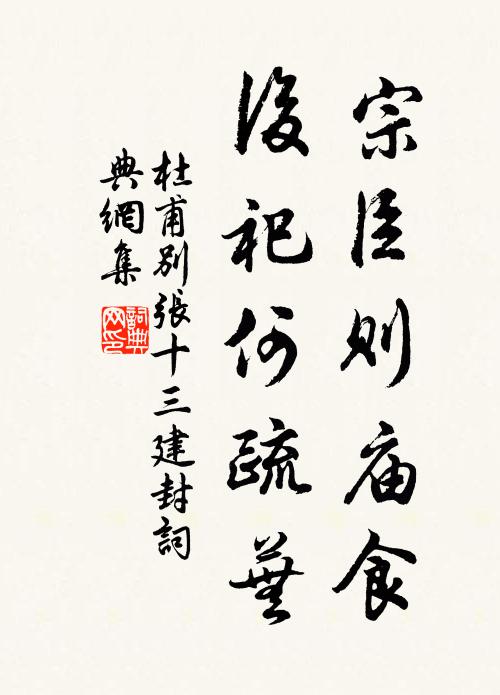 宗臣则庙食
後祀何疏蕪
杜甫别張十三建封詞
典網集
詞典网印